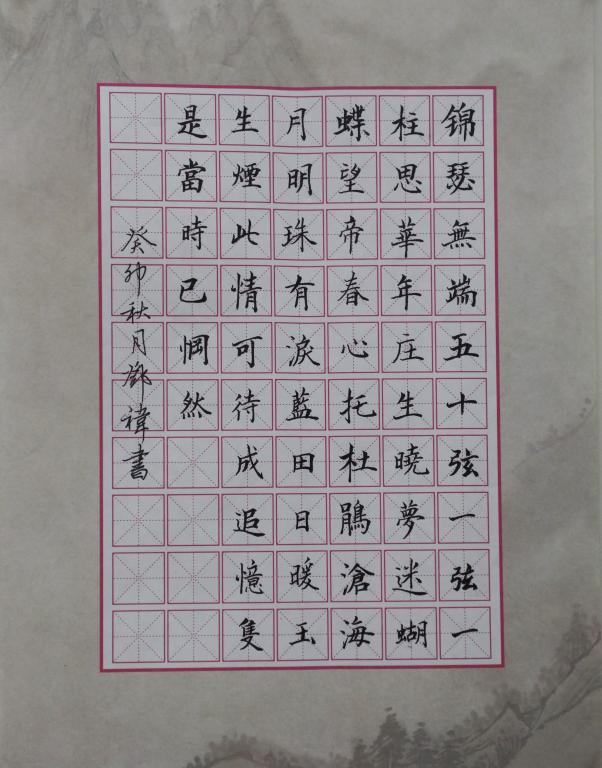 锦瑟無端五十弦一弦一
柱思華年庄生曉夢迷蝴
蝶望帝春心托杜鵑滄海
月明珠有淚藍田日暖玉
生煙此情可待成追憶隻
是當時已惘然
癸卯秋月鄧褘書